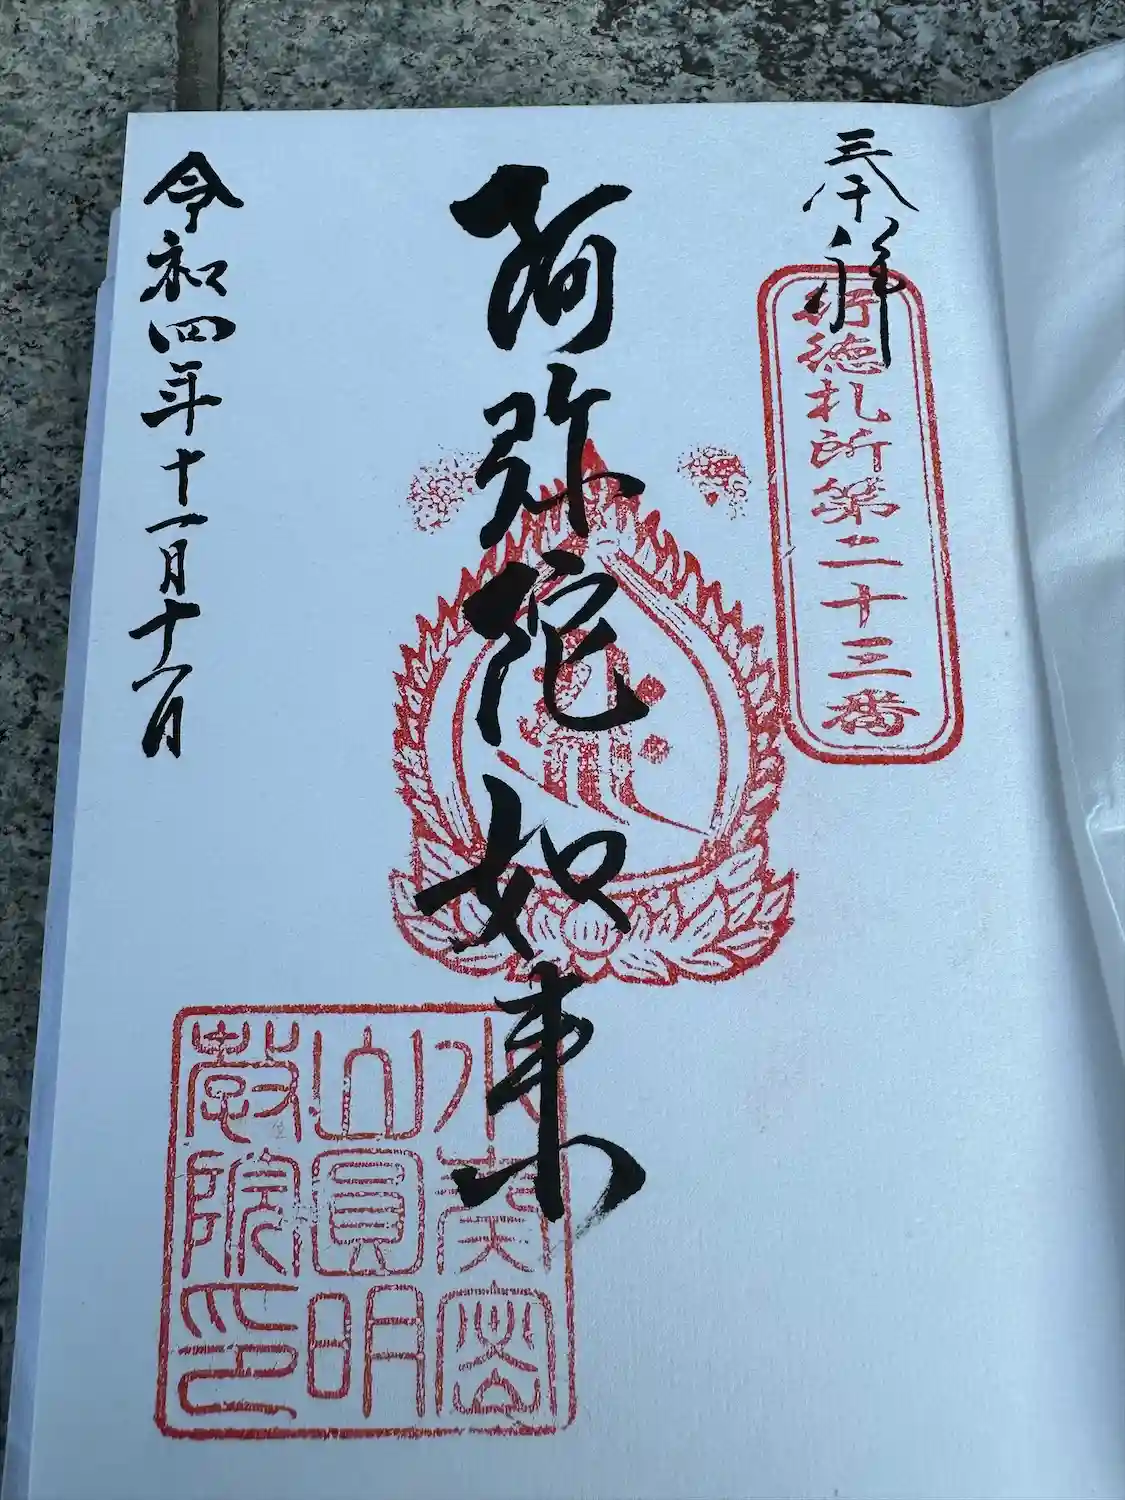 奉拝
行徳札所第二十三番
阿弥陀如来
令和四年十一月十一日
山圓明
教院印